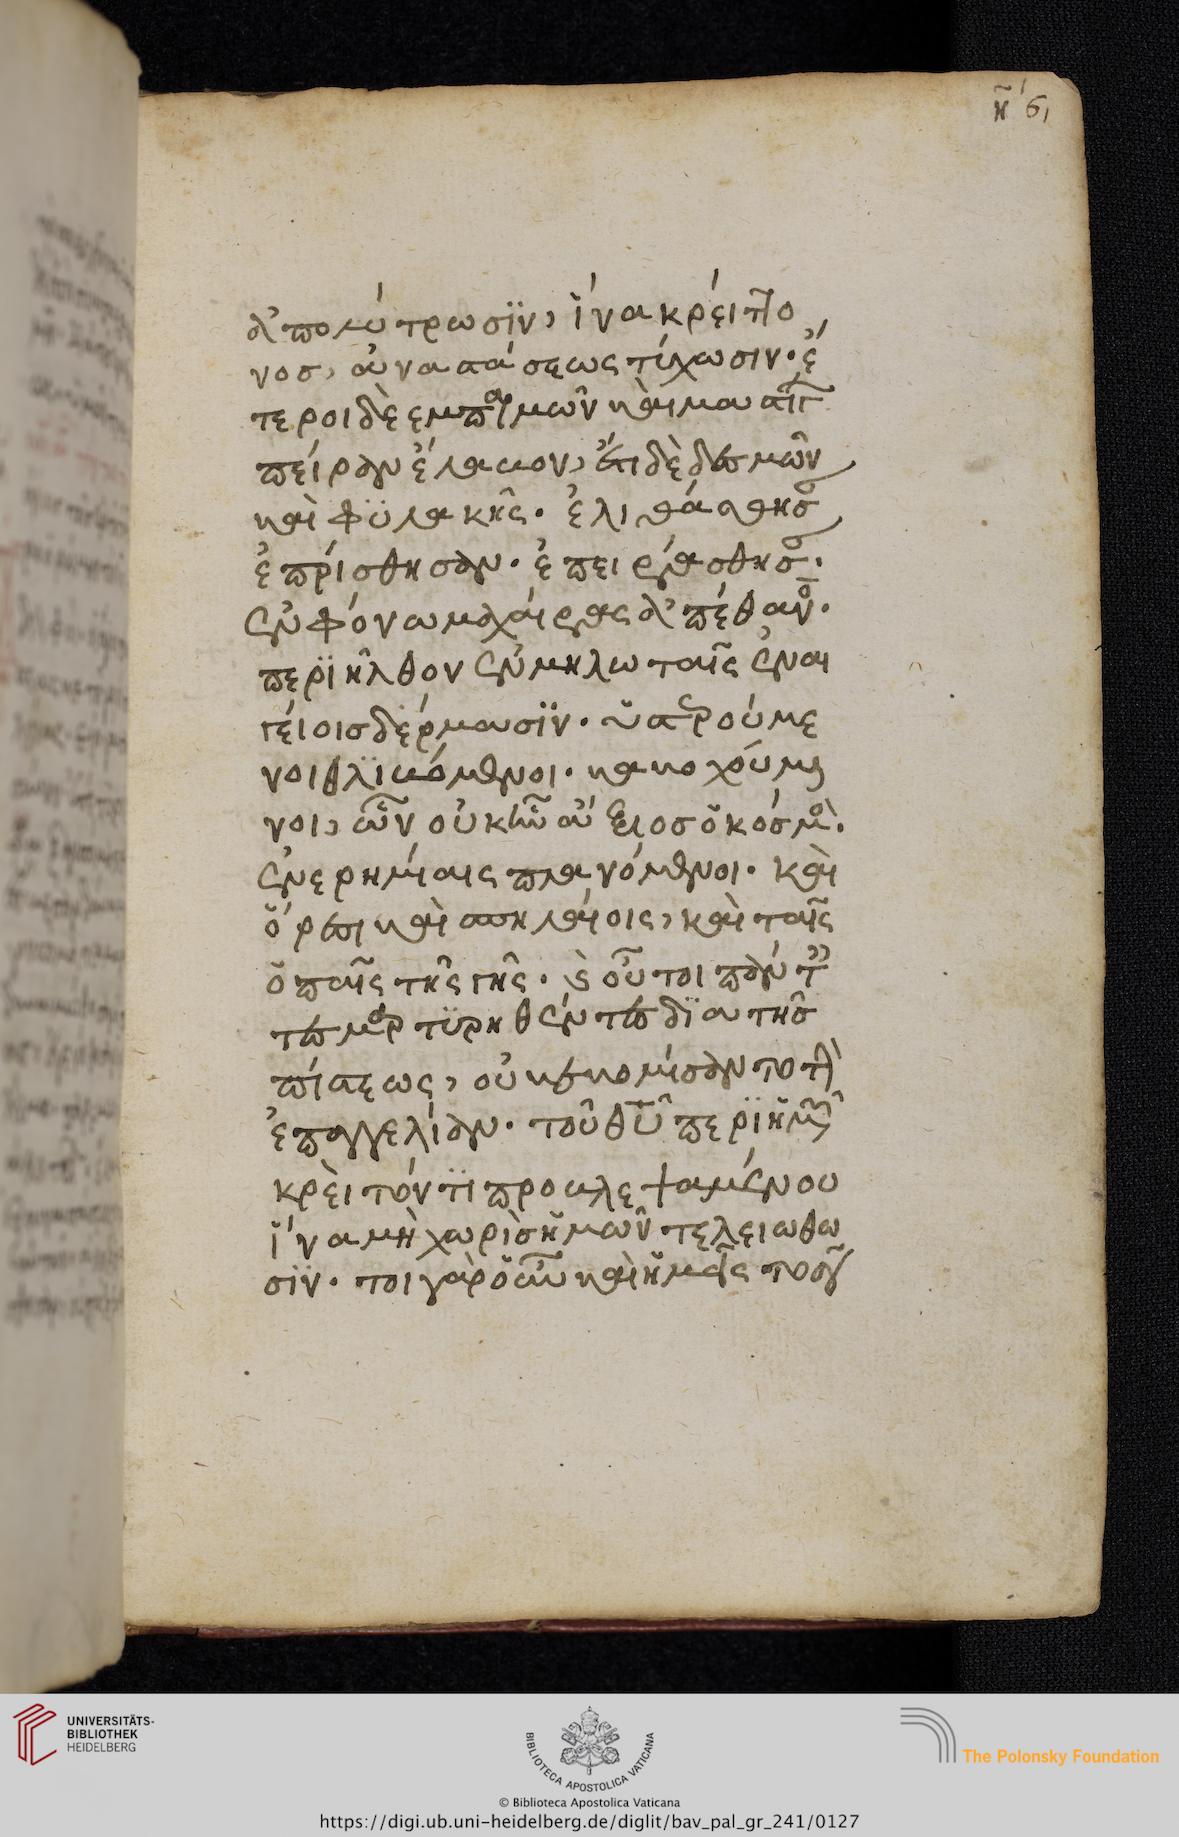 ν̃ʹ 61
ἀπολύτρωσϊν, ἵνα κρείττο
νος, ἀναστάσεως τύχωσιν· ἕ
τεροι δὲ εμπαιγμῶν καὶ μαστίγ
πείραν ἔλαβον, ἔτι δὲ δεσμῶν
καὶ φϋλακῆς· ἐλιθάσθησ
ἐπρίσθησαν· ἐπειράσθησ·
ἐν φόνω μαχαίρας ἀπέθαν·
περϊῆλθον ἐν μηλωταῖς ἐν αι
γείοις δέρμασϊν· ὑστερούμε
νοι θλϊβόμενοι· κακοχούμε
νοι, ὧν οὐκ ἦν ἄξιος ὁ κόσμ·
ἐν ερημίαις πλανόμενοι· καὶ
ὄρεσι καὶ σπηλαίοις, καὶ ταῖς
ὀπαῖς τῆς γῆς· ϗ οὗτοι παντ
τες μαρτϋρηθέντες δϊα τῆς
πίστεως, οὐκ εκομίσαντο τὴ
ἐπαγγελίαν· τοῦ θῦ περϊ ἡμῶ
κρεὶτόν τϊ προβλεψαμένου
ἵνα μὴ χωρὶς ἡμῶν τελειωθω
σϊν· τοιγὰροῦν καὶ ἡμεῖς τοσοῦ
UNIVERSITÄTS-
BIBLIOTHEK
HEIDELBERG
BIBLIOTECA APOSTOLICA VATICANA
The Polonsky Foundation
© Biblioteca Apostolica Vaticana
https://digi.ub.uni-heidelberg.de/diglit/bav_pal_gr_241/0127